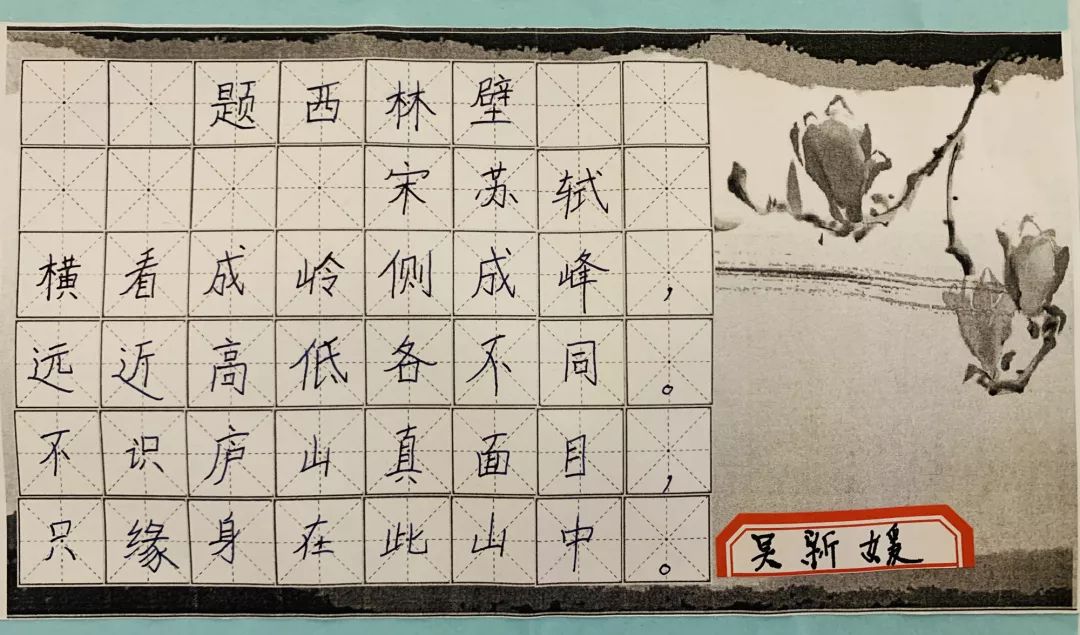 题西林壁
宋苏轼
横看成岭侧成峰，
远近高低各不同。
不识庐山真面目，
只缘身在此山中。
吴新媛